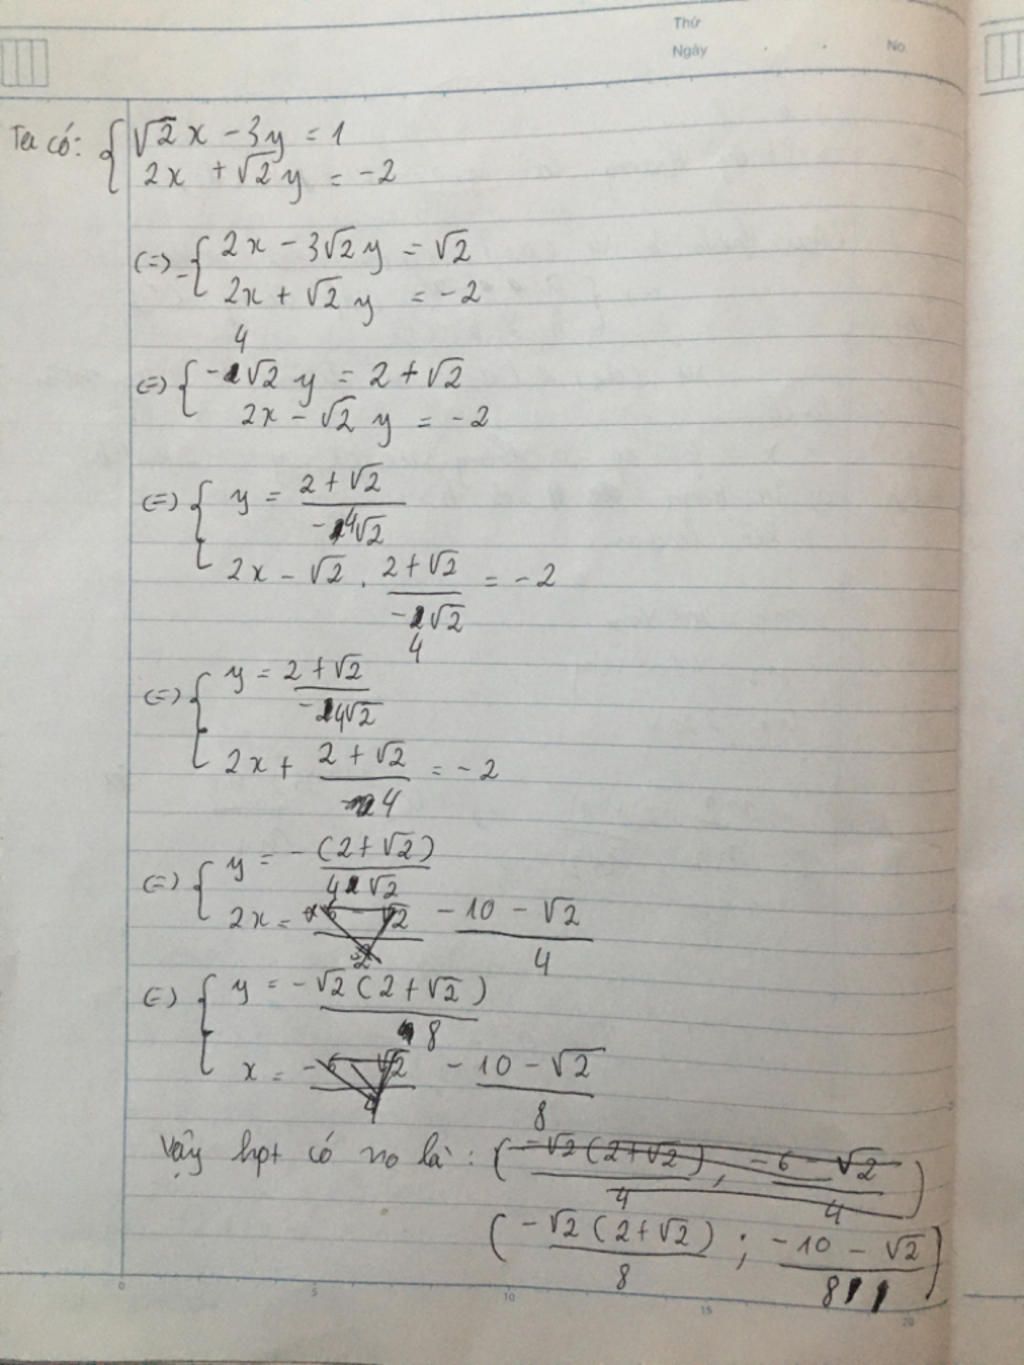 Thứ
Ngày
No
Ta có: { √2 x - 3y = 1
2x + √2 y = -2
(=) { 2x - 3√2 y = √2
2x + √2 y = -2
(=) { -4√2 y = 2 + √2
2x - √2 y = -2
(=) { y = (2 + √2)/(-4√2)
2x - √2 . (2 + √2)/(-4√2) = -2
(=) { y = (2 + √2)/(-4√2)
2x + (2 + √2)/4 = -2
(=) { y = -(2 + √2)/(4√2)
2x = (-10 - √2)/4
(=) { y = -√2(2 + √2)/8
x = (-10 - √2)/8
Vậy hpt có no là: (-√2(2+√2)/4 , (-6 - √2)/4)
(-√2(2+√2)/8 ; (-10 - √2)/8)
0 5 10 15 20